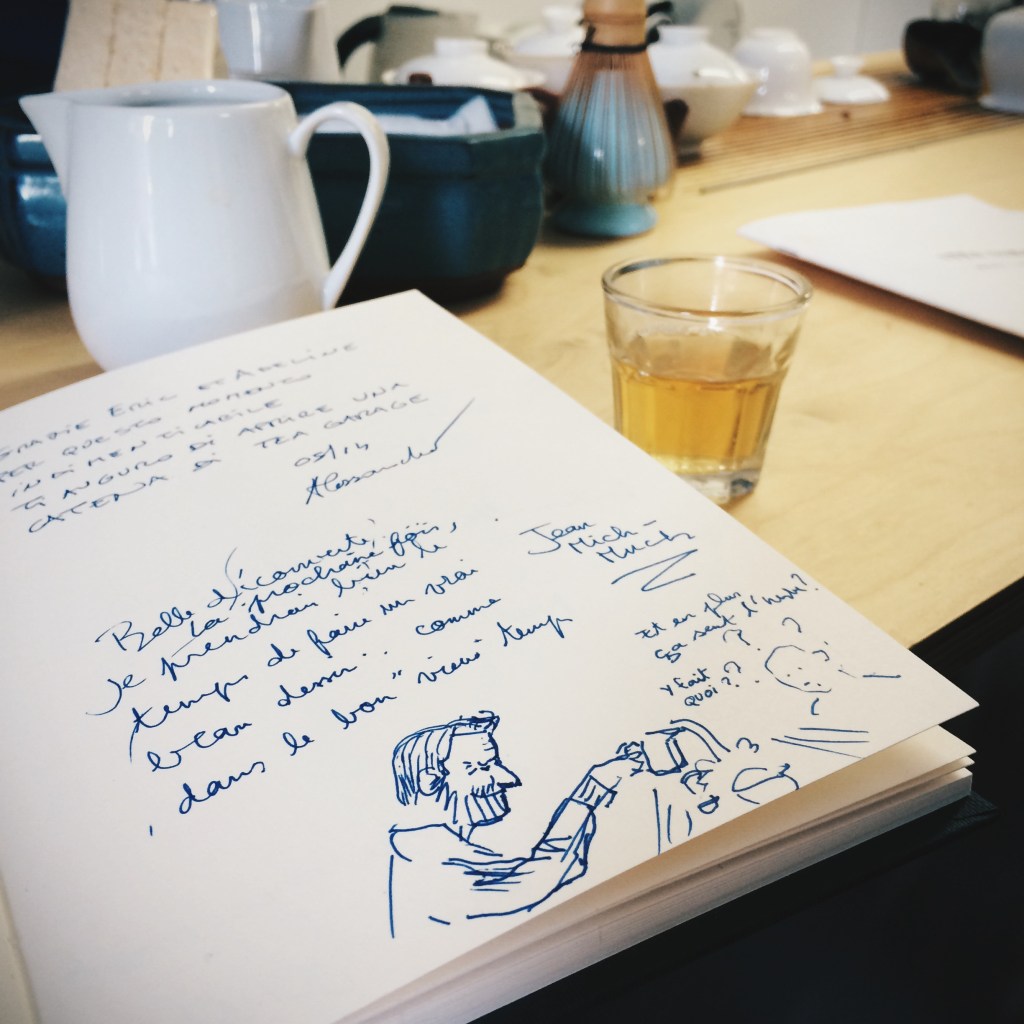 GRAZIE ERIC ET ADELINE
PER QUESTO MOMENTO
INDIMENTICABILE
TI AUGURO DI APRIRE UNA
CATENA DI TEA GARAGE
05/14
Alessandro
Belle découverte,
la prochaine fois,
je prendrai bien le
temps de faire un vrai
beau dessin.. comme
dans le bon "vieux temps
Jean
Mich
Et en plus
ça sent l'
Y fait
quoi??